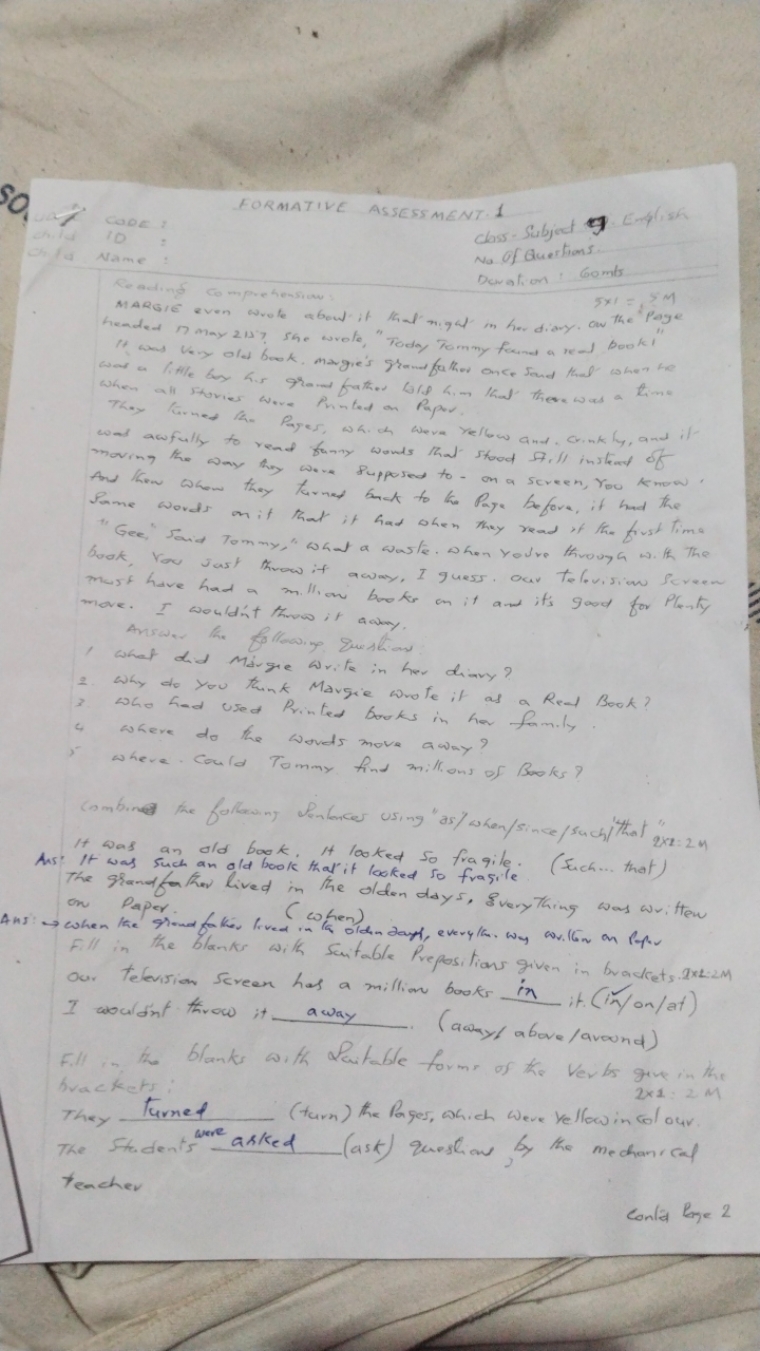 SO
FORMATIVE ASSESSMENT. 1
CODE :
Child ID :
Child Name :
Class - Subject 9 English
No. Of Questions.
Duration : 60mts
Reading Comprehension: 5x1 = 5M
MARGIE even wrote about it that night in her diary. On the "Page
headed 17 May 2157 She wrote, "Today Tommy found a real book!"
It was very old book. Margie's grandfather once said that when he
was a little boy his grandfather told him that there was a time
when all stories were Printed on Paper.
They turned the Pages, which were yellow and crinkly, and it
was awfully to read funny words that stood still instead of
moving the way they were supposed to - on a screen, you know.
And then when they turned back to the Page before, it had the
Same words on it that it had when they read it the first time
"Gee," Said Tommy, "what a waste. when you're through with the
book, you just throw it away, I guess. our television Screen
must have had a million books on it and it's good for Plenty
more. I wouldn't throw it away.
Answer the following questions
1 what did Margie write in her diary?
2. why do you think Margie wrote it as a Real Book?
3 who had used Printed books in her family.
4 where do the words move away?
5 where. Could Tommy find millions of Books?
Combine the following Sentences using "as/when/since/such/that" 2x1: 2M
It was an old book. It looked so fragile. (Such... that)
Ans: It was such an old book that it looked so fragile
The grandfather lived in the olden days, everything was written
on Paper. (when)
Ans: → when the grandfather lived in the olden days, everythin. was written on Paper
Fill in the blanks with Suitable Prepositions given in brackets. 2x1:2M
Our television Screen has a million books in it. (in/on/at)
I wouldn't throw it away. (away/above/around)
Fill in the blanks with Suitable forms of the Verbs give in the
brackets: 2x1: 2M
They turned (turn) the Pages, which were yellow in colour.
The Students were asked (ask) questions, by the mechanical
teacher
Contd Page 2